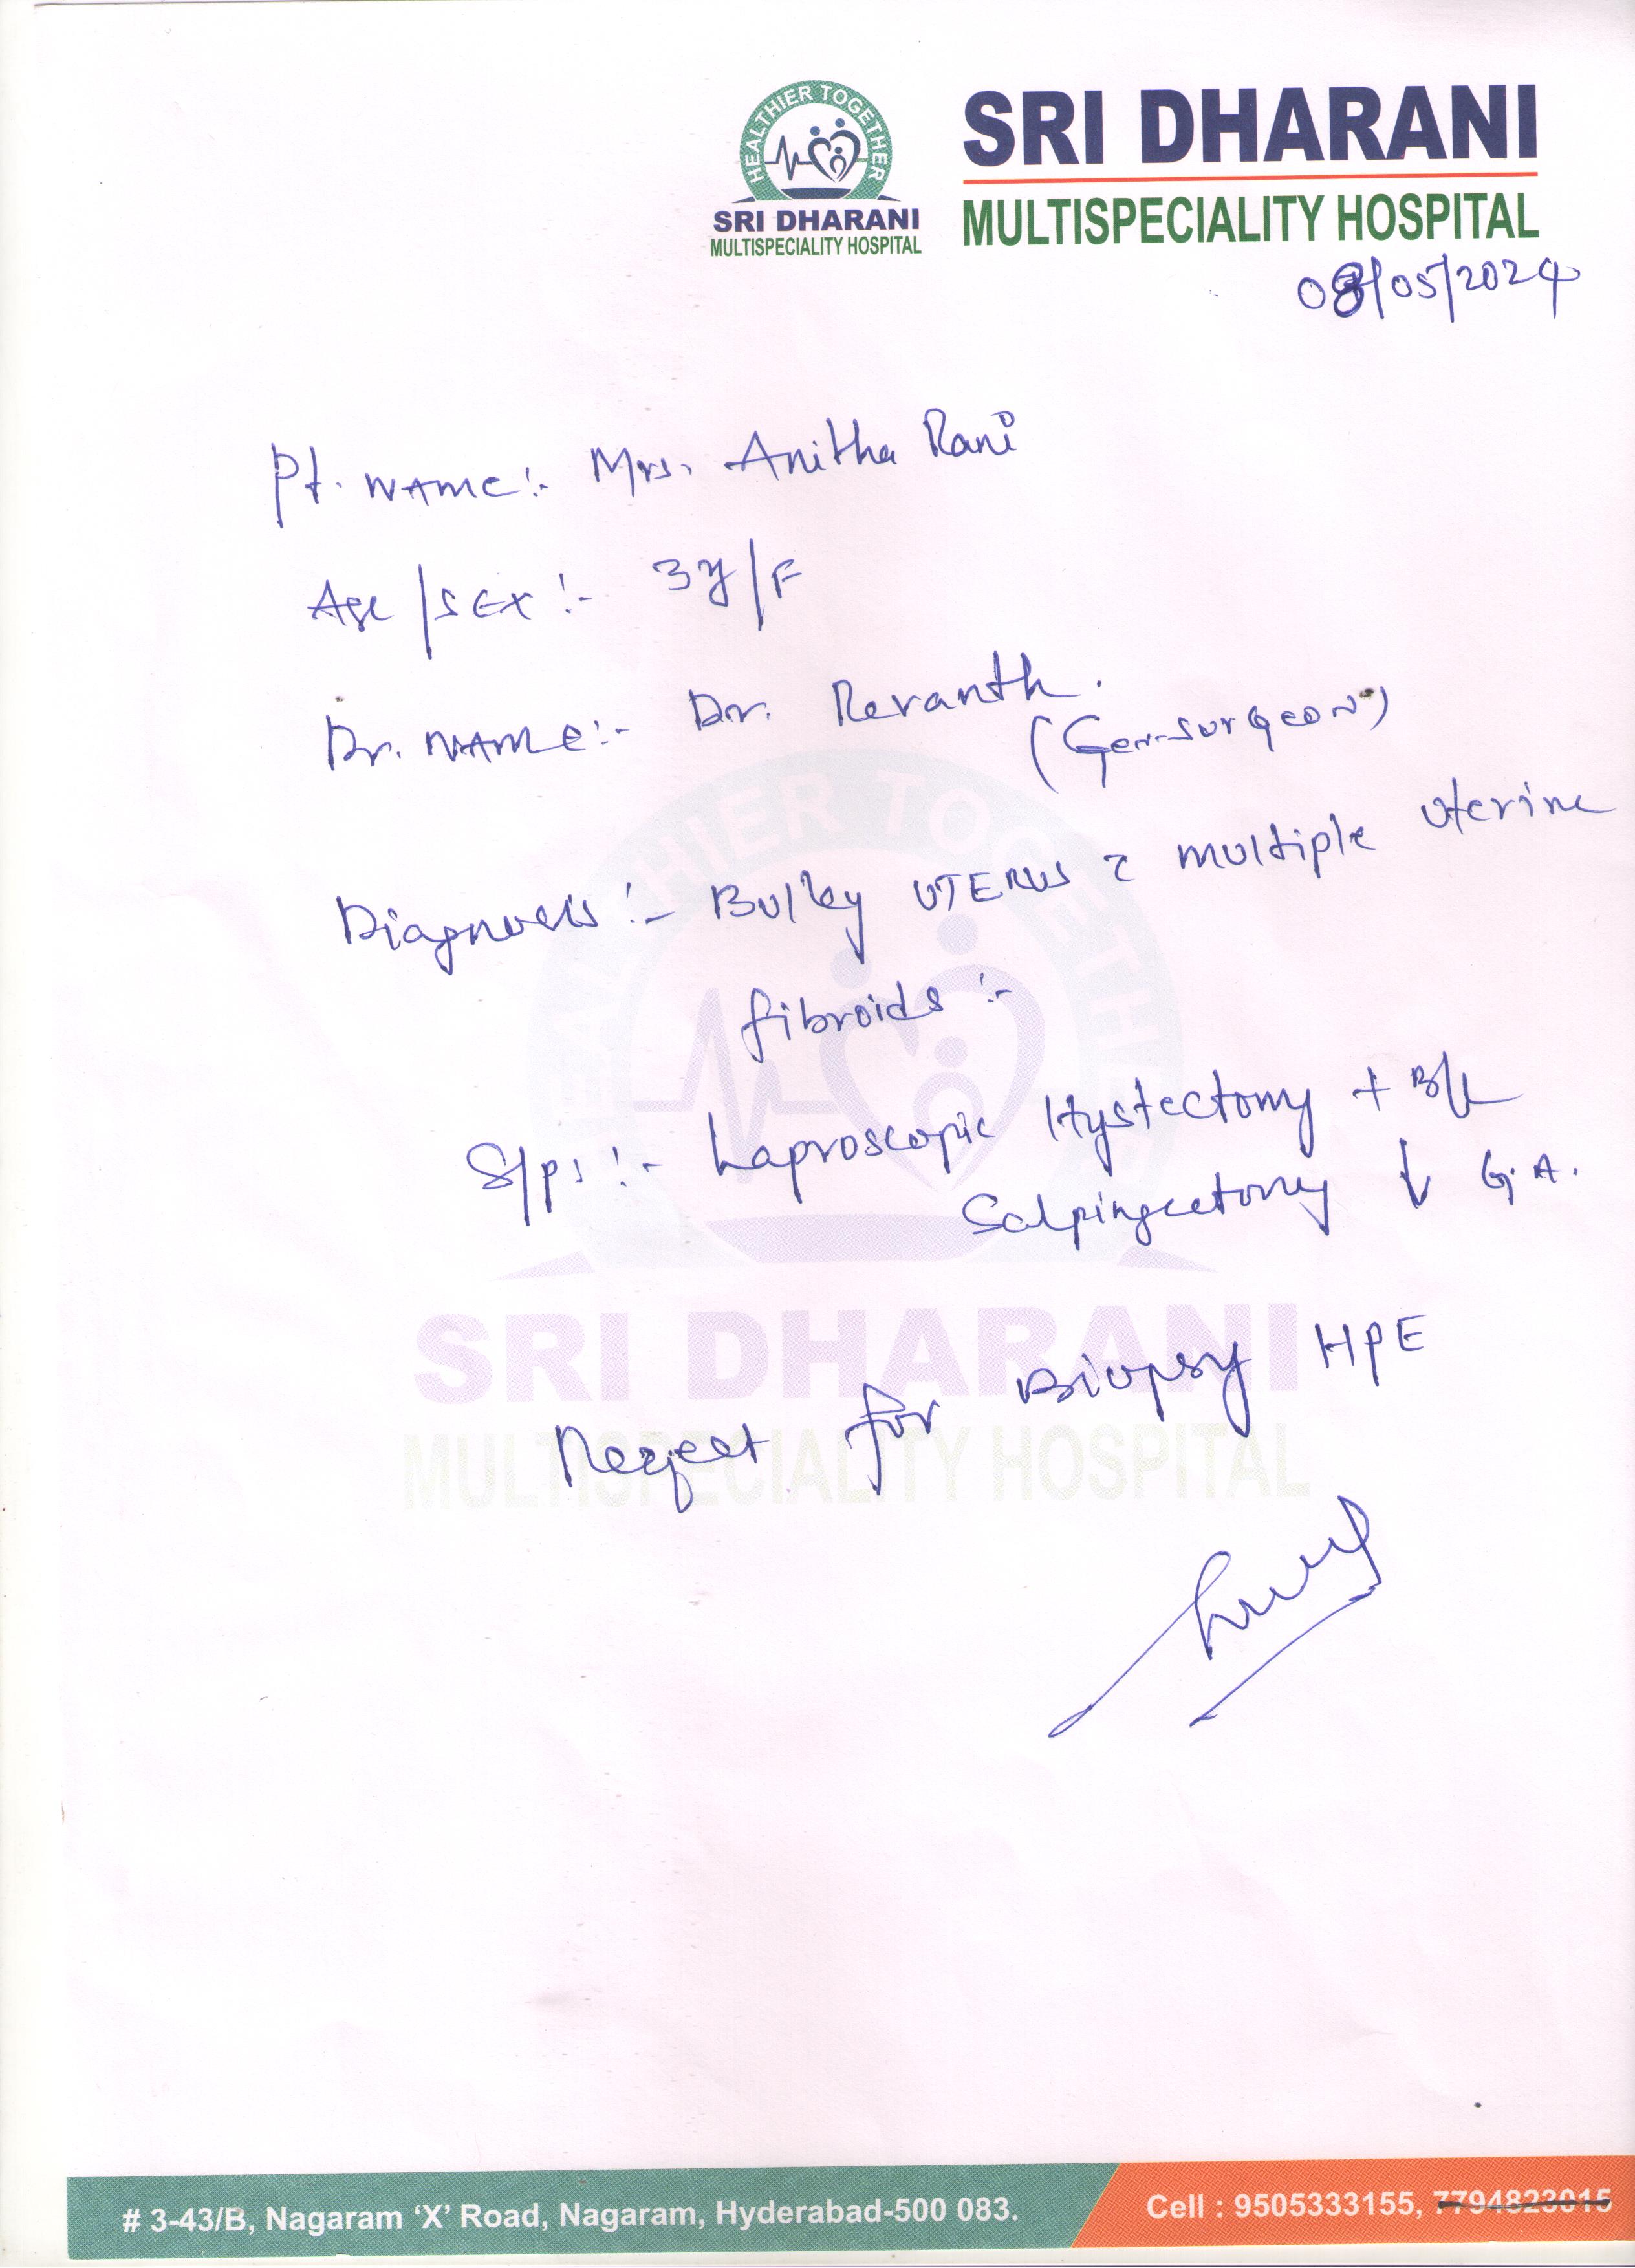 HEALTHIER TOGETHER
SRI DHARANI
MULTISPECIALITY HOSPITAL
SRI DHARANI
MULTISPECIALITY HOSPITAL
08/05/2024
Pt. NAME:- Mrs. Anitha Rani
Age/SEX:-
Dr. NAME:- Dr. Revanth.
(Gen-surgeon)
Diagnosis:- Bulky UTERUS c̄ multiple uterine
fibroids:-
S/P:- Laproscopic Hystectomy + B/L
Salpingectomy ↓ G.A.
for Biopsy HPE
HEALTHIER TOGETHER
SRI DHARANI
MULTISPECIALITY HOSPITAL
# 3-43/B, Nagaram ‘X’ Road, Nagaram, Hyderabad-500 083.
Cell : 9505333155, 7794823015